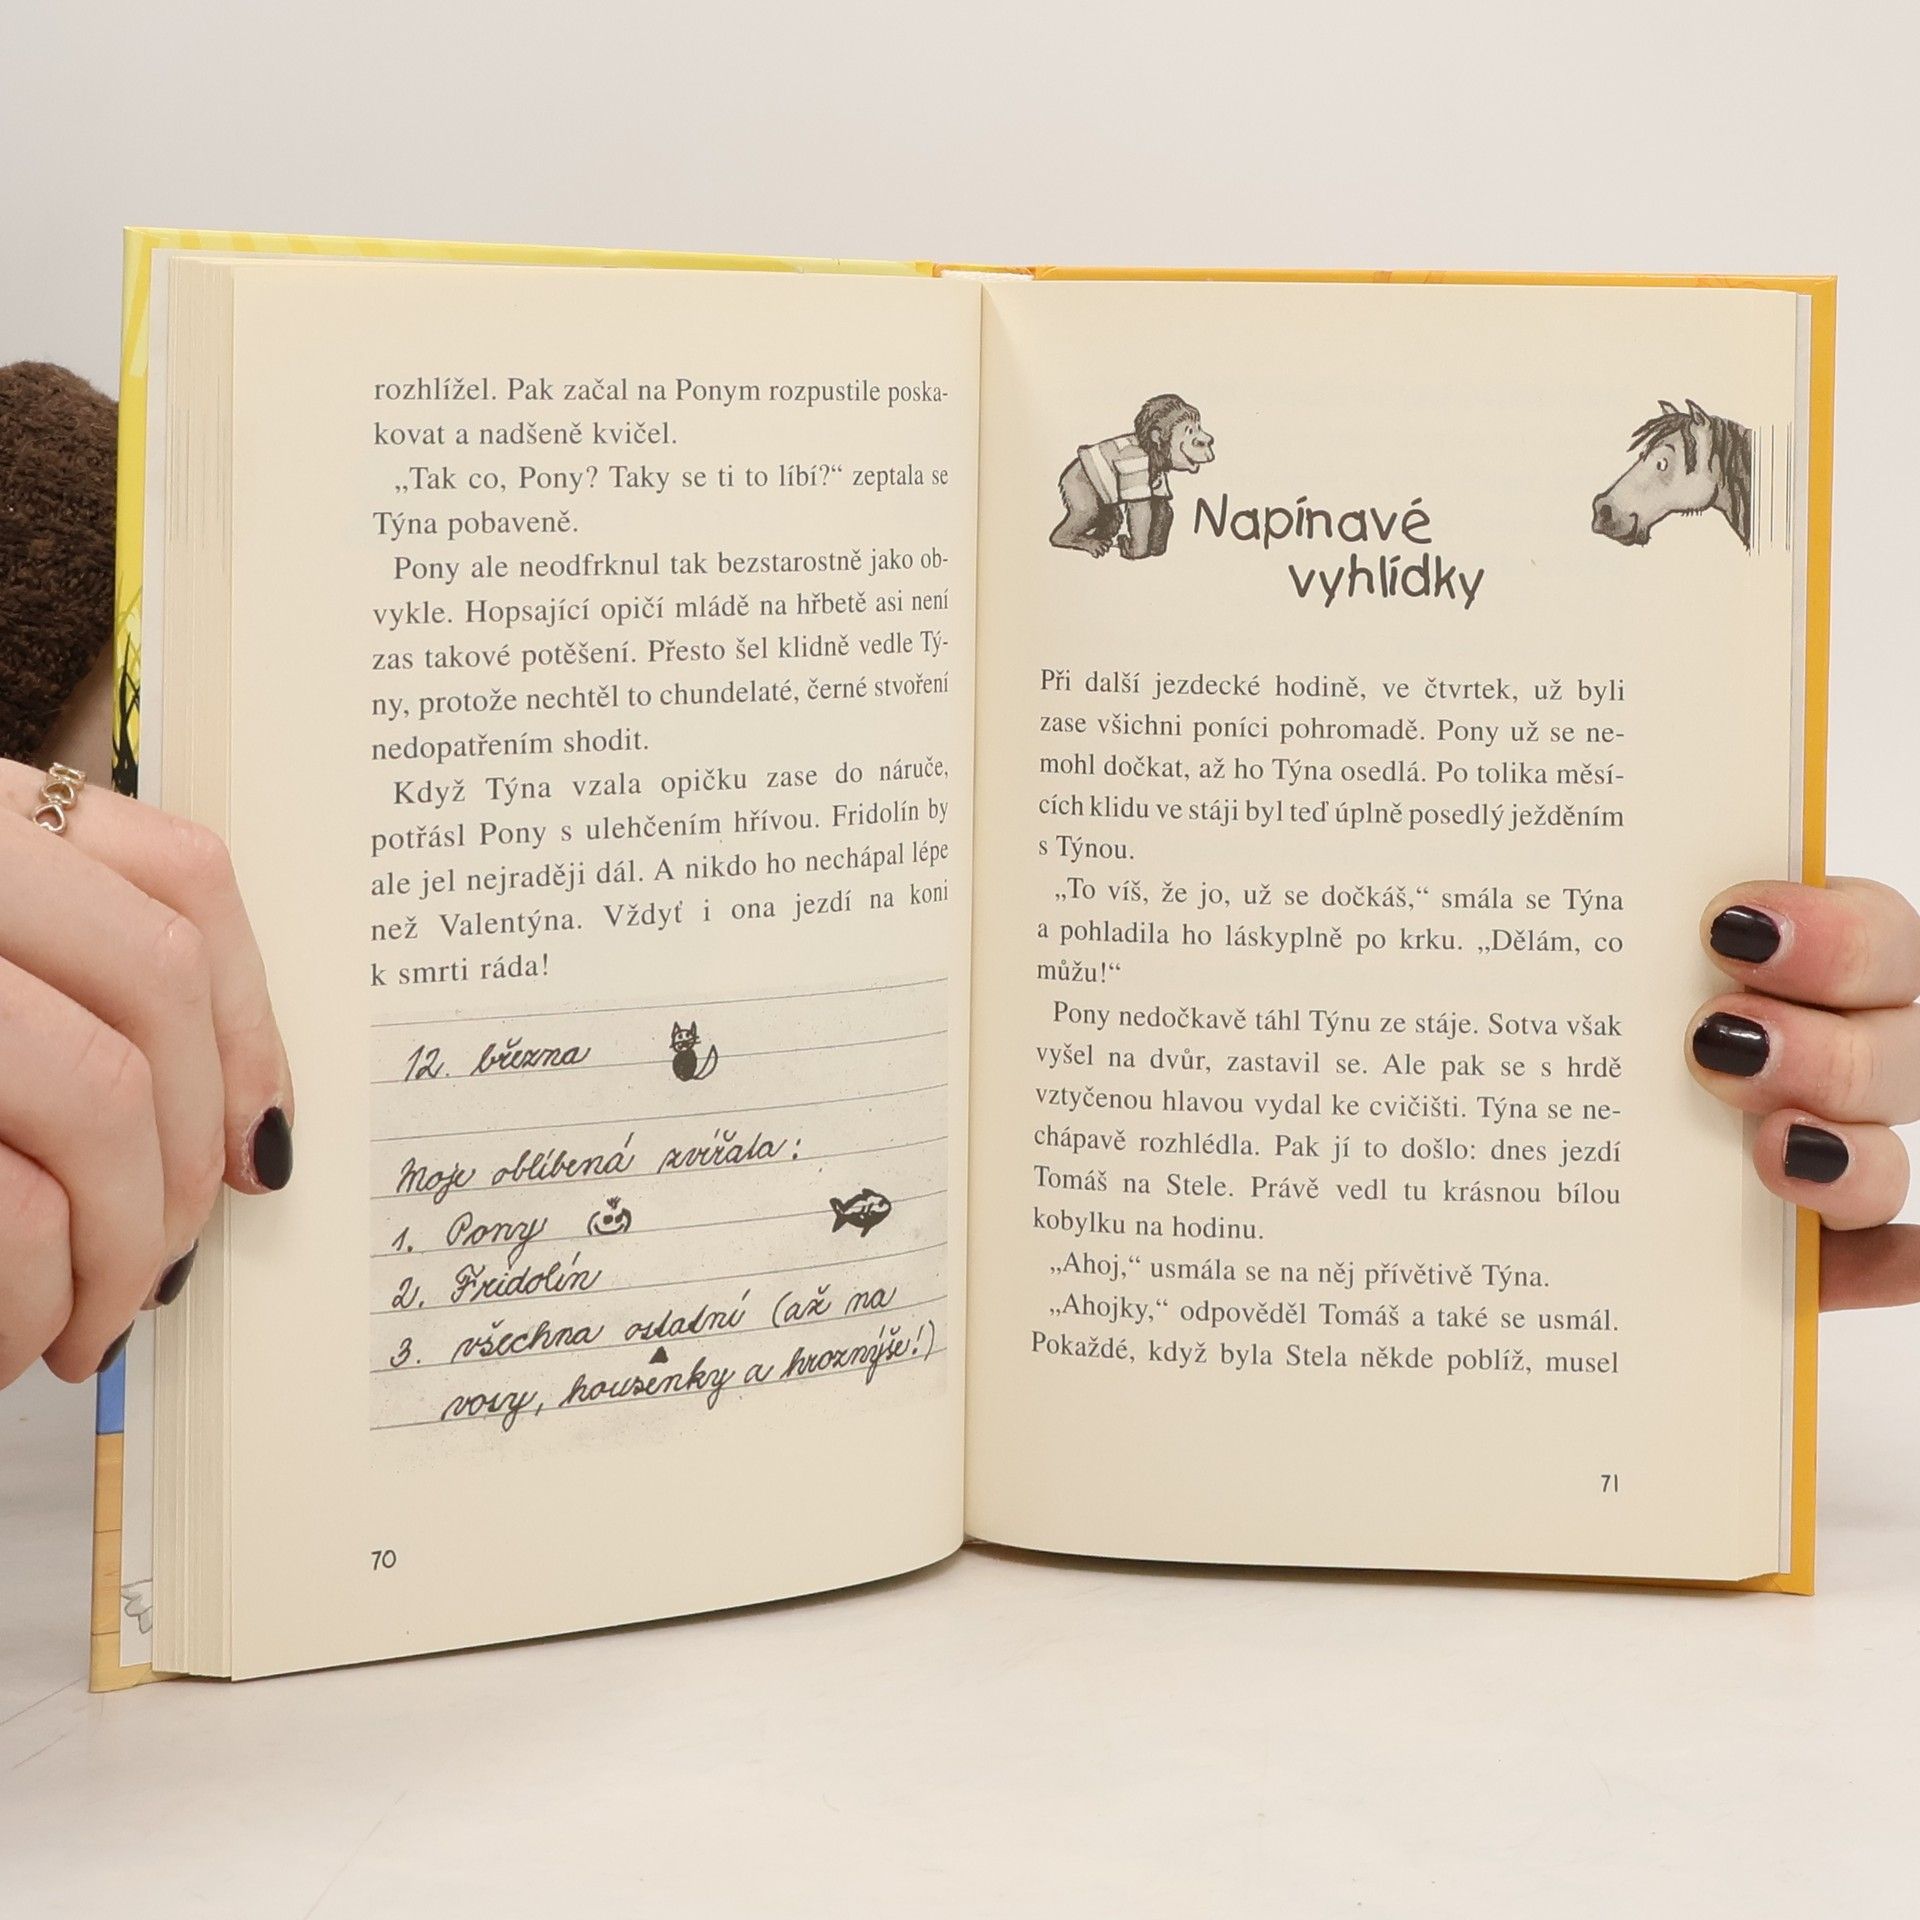 rozhlížel. Pak začal na Ponym rozpustile poska-
kovat a nadšeně kvičel.
„Tak co, Pony? Taky se ti to líbí?“ zeptala se
Týna pobaveně.
Pony ale neodfrknul tak bezstarostně jako ob-
vykle. Hopsající opičí mládě na hřbetě asi není
zas takové potěšení. Přesto šel klidně vedle Tý-
ny, protože nechtěl to chundelaté, černé stvoření
nedopatřením shodit.
Když Týna vzala opičku zase do náruče,
potřásl Pony s ulehčením hřívou. Fridolín by
ale jel nejraději dál. A nikdo ho nechápal lépe
než Valentýna. Vždyť i ona jezdí na koni
k smrti ráda!
12. března
Moje oblíbená zvířata:
1. Pony
2. Fridolín
3. všechna ostatní (až na
vosy, housenky a hroznýše!)
70
Napínavé
vyhlídky
Při další jezdecké hodině, ve čtvrtek, už byli
zase všichni poníci pohromadě. Pony už se ne-
mohl dočkat, až ho Týna osedlá. Po tolika měsí-
cích klidu ve stáji byl teď úplně posedlý ježděním
s Týnou.
„To víš, že jo, už se dočkáš,“ smála se Týna
a pohladila ho láskyplně po krku. „Dělám, co
můžu!“
Pony nedočkavě táhl Týnu ze stáje. Sotva však
vyšel na dvůr, zastavil se. Ale pak se s hrdě
vztyčenou hlavou vydal ke cvičišti. Týna se ne-
chápavě rozhlédla. Pak jí to došlo: dnes jezdí
Tomáš na Stele. Právě vedl tu krásnou bílou
kobylku na hodinu.
„Ahoj,“ usmála se na něj přívětivě Týna.
„Ahojky,“ odpověděl Tomáš a také se usmál.
Pokaždé, když byla Stela někde poblíž, musel
71